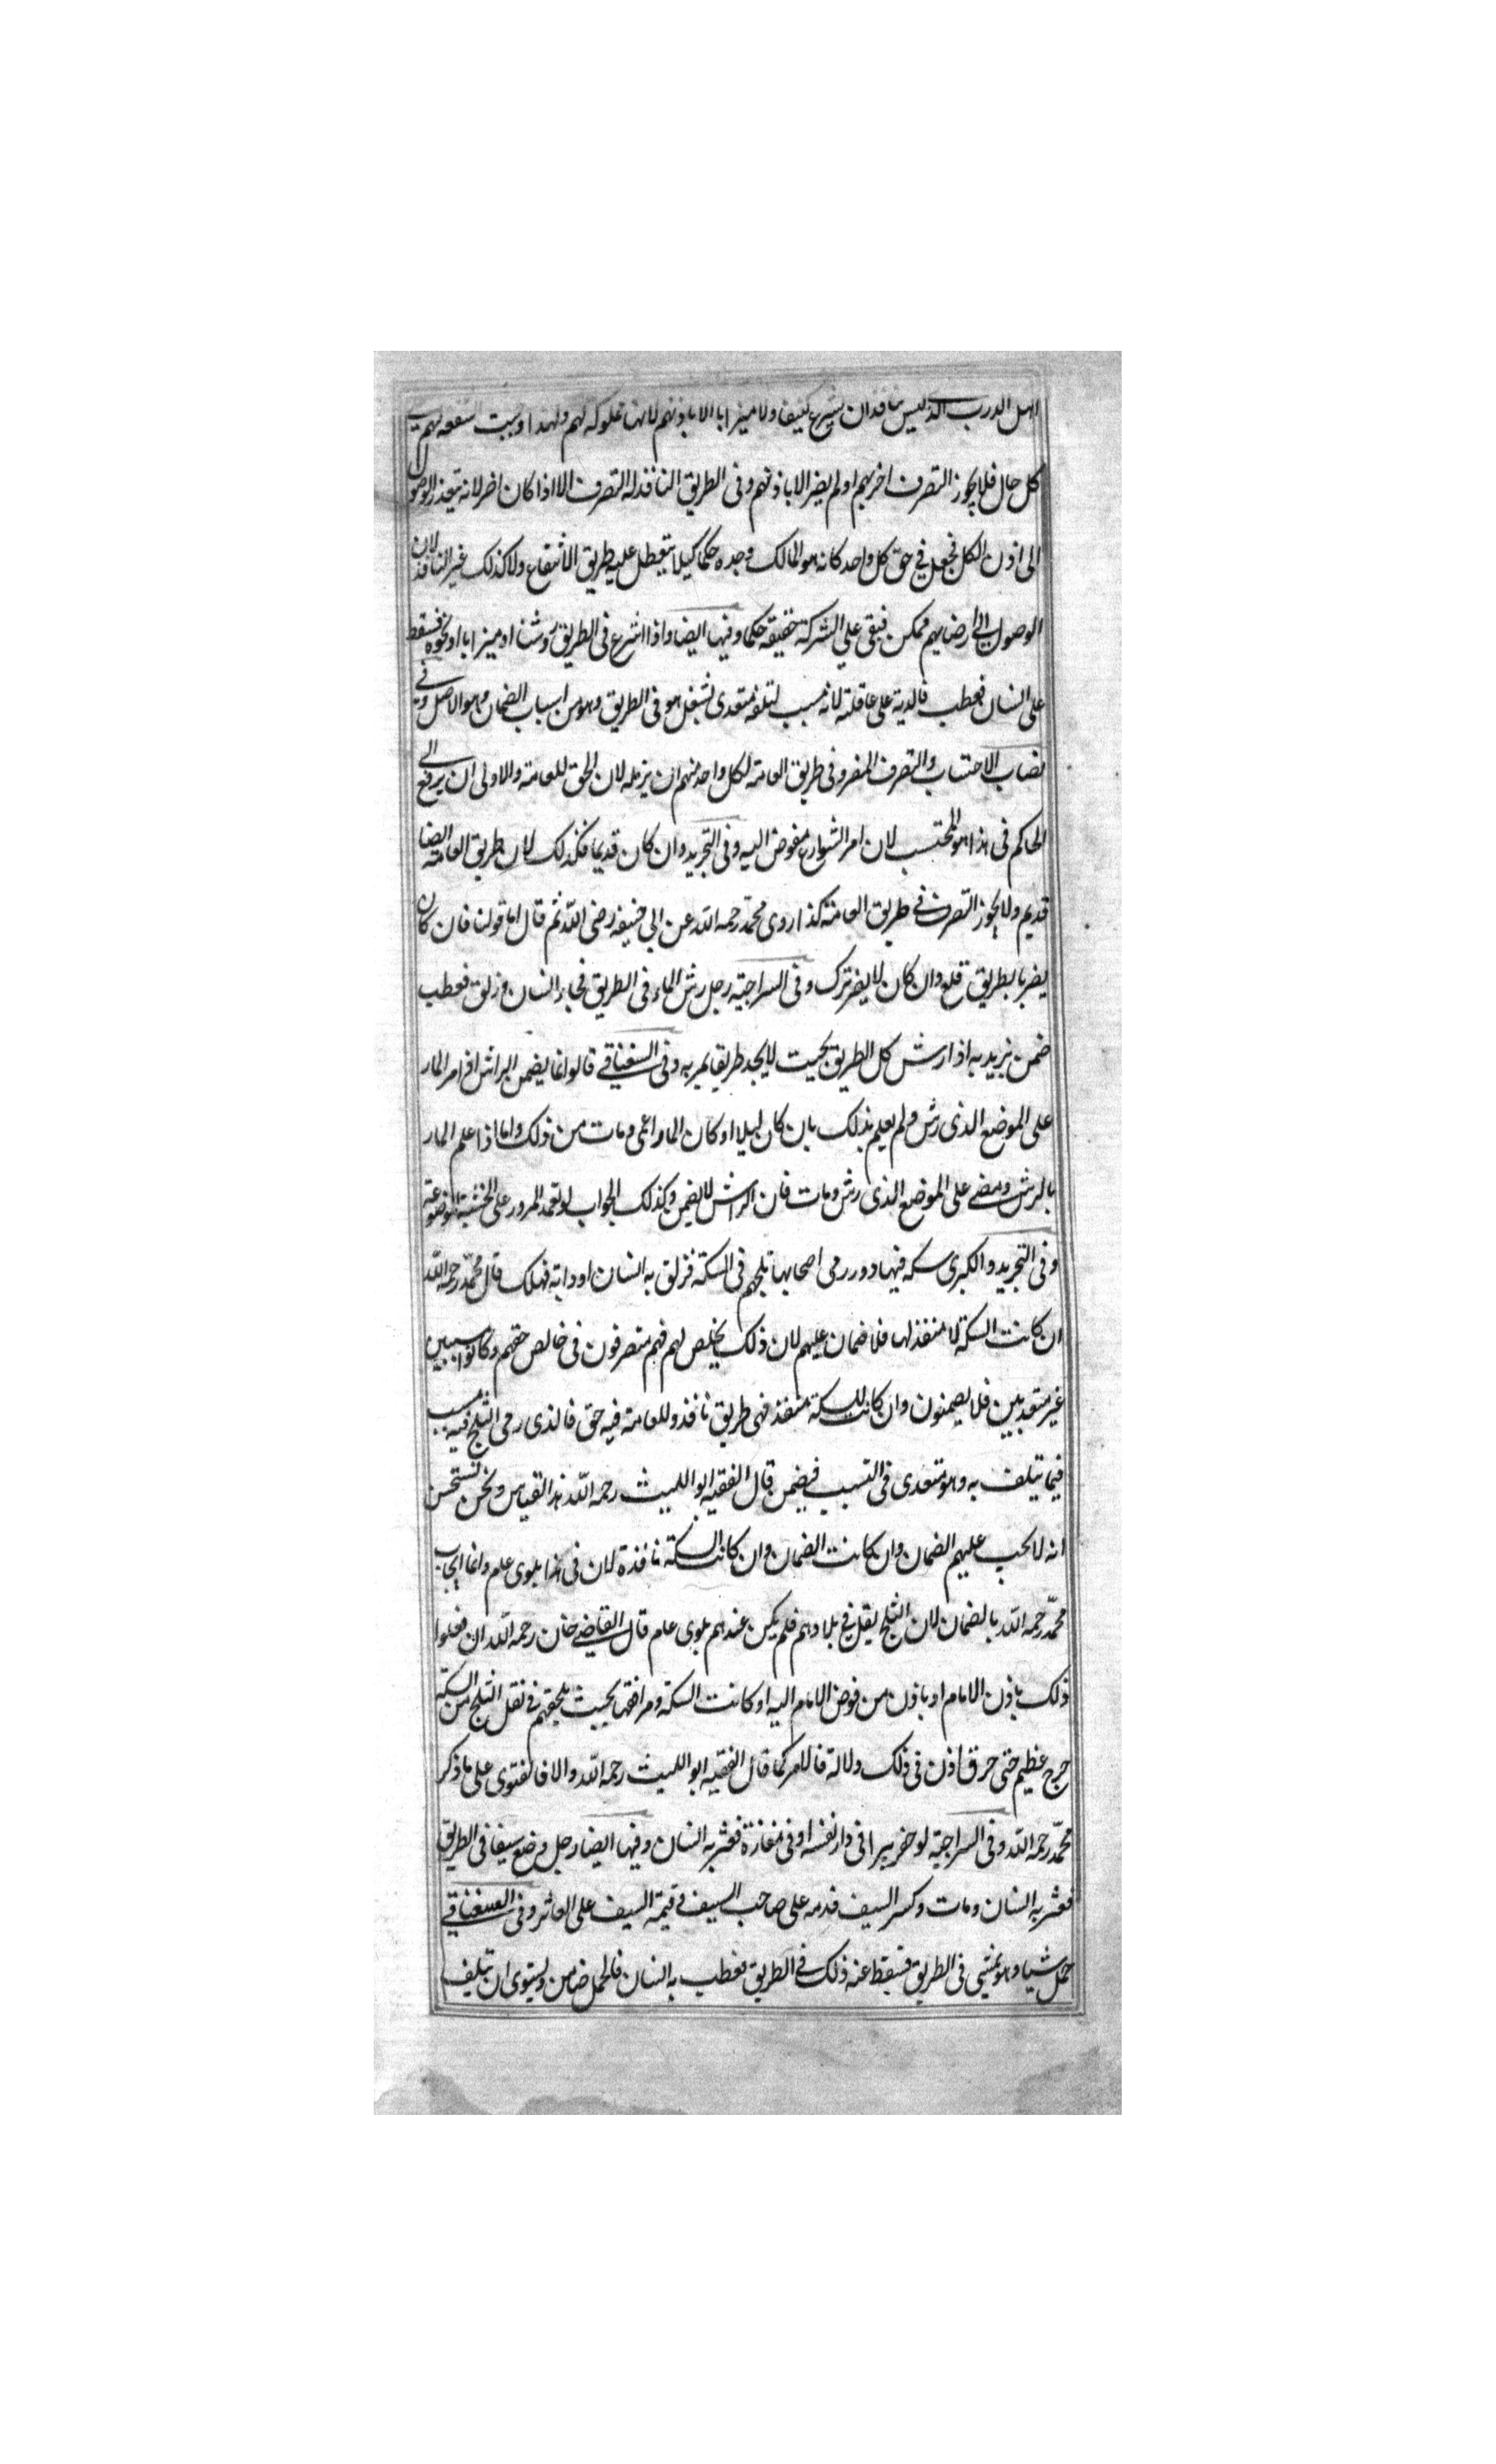 اهل الدرب الذى ليس بنافذ ان يشرع كنيفا ولا ميزابا الا باذنهم لانها مملوكة لهم ولهذا وجبت الشفعة لهم على
كل حال فلا يجوز التصرف اضر بهم او لم يضر الا باذنهم وفى الطريق النافذ له التصرف الا اذا كان اضر لانه يتعذر الوصول
الى اذن الكل فجعل فى حق كل واحد كانه هو المالك وحده حكما كيلا يتعطل عليه طريق الانتفاع ولا كذلك غير النافذ لان
الوصول الى ارضايهم ممكن فبقى على الشركة حقيقة حكما وفيها ايضا واذا اشرع فى الطريق روشنا او ميزابا او نحوه فسقط
على انسان فعطب فالدية على عاقلته لانه مسبب لتلفه متعدى بشغل هو فى الطريق وهو من اسباب الضمان وهو الاصل وفى
نصاب الاحتساب والتصرف المضر فى طريق العامة لكل واحد منهم ان يزيله لان الحق للعامة والاولى ان يرفع الى
الحاكم فى هذا هو المحتسب لان امر الشوارع مفوض اليه وفى التجريد وان كان قديما فكذلك لان طريق العامة ايضا
قديم ولا يجوز التصرف فى طريق العامة كذا روى محمد رحمه الله عن ابى حنيفه رضى الله ثم قال اما قولنا فان كان
يضر بالطريق قلع وان كان لا يضر ترك وفى السراجية رجل رش الماء فى الطريق فجاء انسان وزلق فعطب
ضمن يريد به اذا رش كل الطريق بحيث لا يجد طريقا يمر به وفى السغناقى قالوا انما يضمن الراش اذا مر المار
على الموضع الذى رش ولم يعلم بذلك بان كان ليلا او كان المار اعمى ومات من ذلك واما اذا علم المار
بالرش ومضى على الموضع الذى رش ومات فان الراش لا يضمن وكذلك الجواب لو تعمد المرور على الخشبة الموضوعة
وفى التجريد والكبرى سكه فيها دور رمى اصحابها ثلجهم فى السكة فزلق به انسان او دابة فهلك قال محمد رحمه الله
ان كانت السكة لا منفذ لها فلا ضمان عليهم لان ذلك يخلص لهم فهم متصرفون فى خالص حقهم وكانوا مسببين
غير متعديين فلا يضمنون وان كانت للسكة منفذ فهى طريق نافذ وللعامة فيه حق فالذى رمى الثلج فيه مسبب
فيما يتلف به وهو متعدى فى التسبب فيضمن قال الفقيه ابو الليث رحمه الله هذا القياس ونحن نستحسن
انه لا يجب عليهم الضمان وان كانت الضمان وان كانت السكة نافذة لان فى هذا بلوى عام وانما ايجاب
محمد رحمه الله بالضمان لان الثلج يقل فى بلادهم فلم يكن عندهم بلوى عام قال القاضى خان رحمه الله ان فعلوا
ذلك باذن الامام او باذن من فوض الامام اليه او كانت السكة ومرافقها بحيث يلحقهم فى نقل الثلج من السكة
حرج عظيم حتى اذن فى ذلك دلالة فالامر كما قال الفقيه ابو الليث رحمه الله والا فالفتوى على ما ذكر
محمد رحمه الله وفى السراجية لو حفر بيرا فى دار نفسه او فى مفازة فعثر به انسان وفيها ايضا رجل وضع سيفا فى الطريق
فعثر به انسان ومات وكسر السيف فدمه على صاحب السيف وقيمة السيف على العاثر وفى السغناقى
حمل شيا وهو يمشى فى الطريق فسقط عنه ذلك فى الطريق فعطب به انسان فالحمل ضامن ويستوى ان تلف